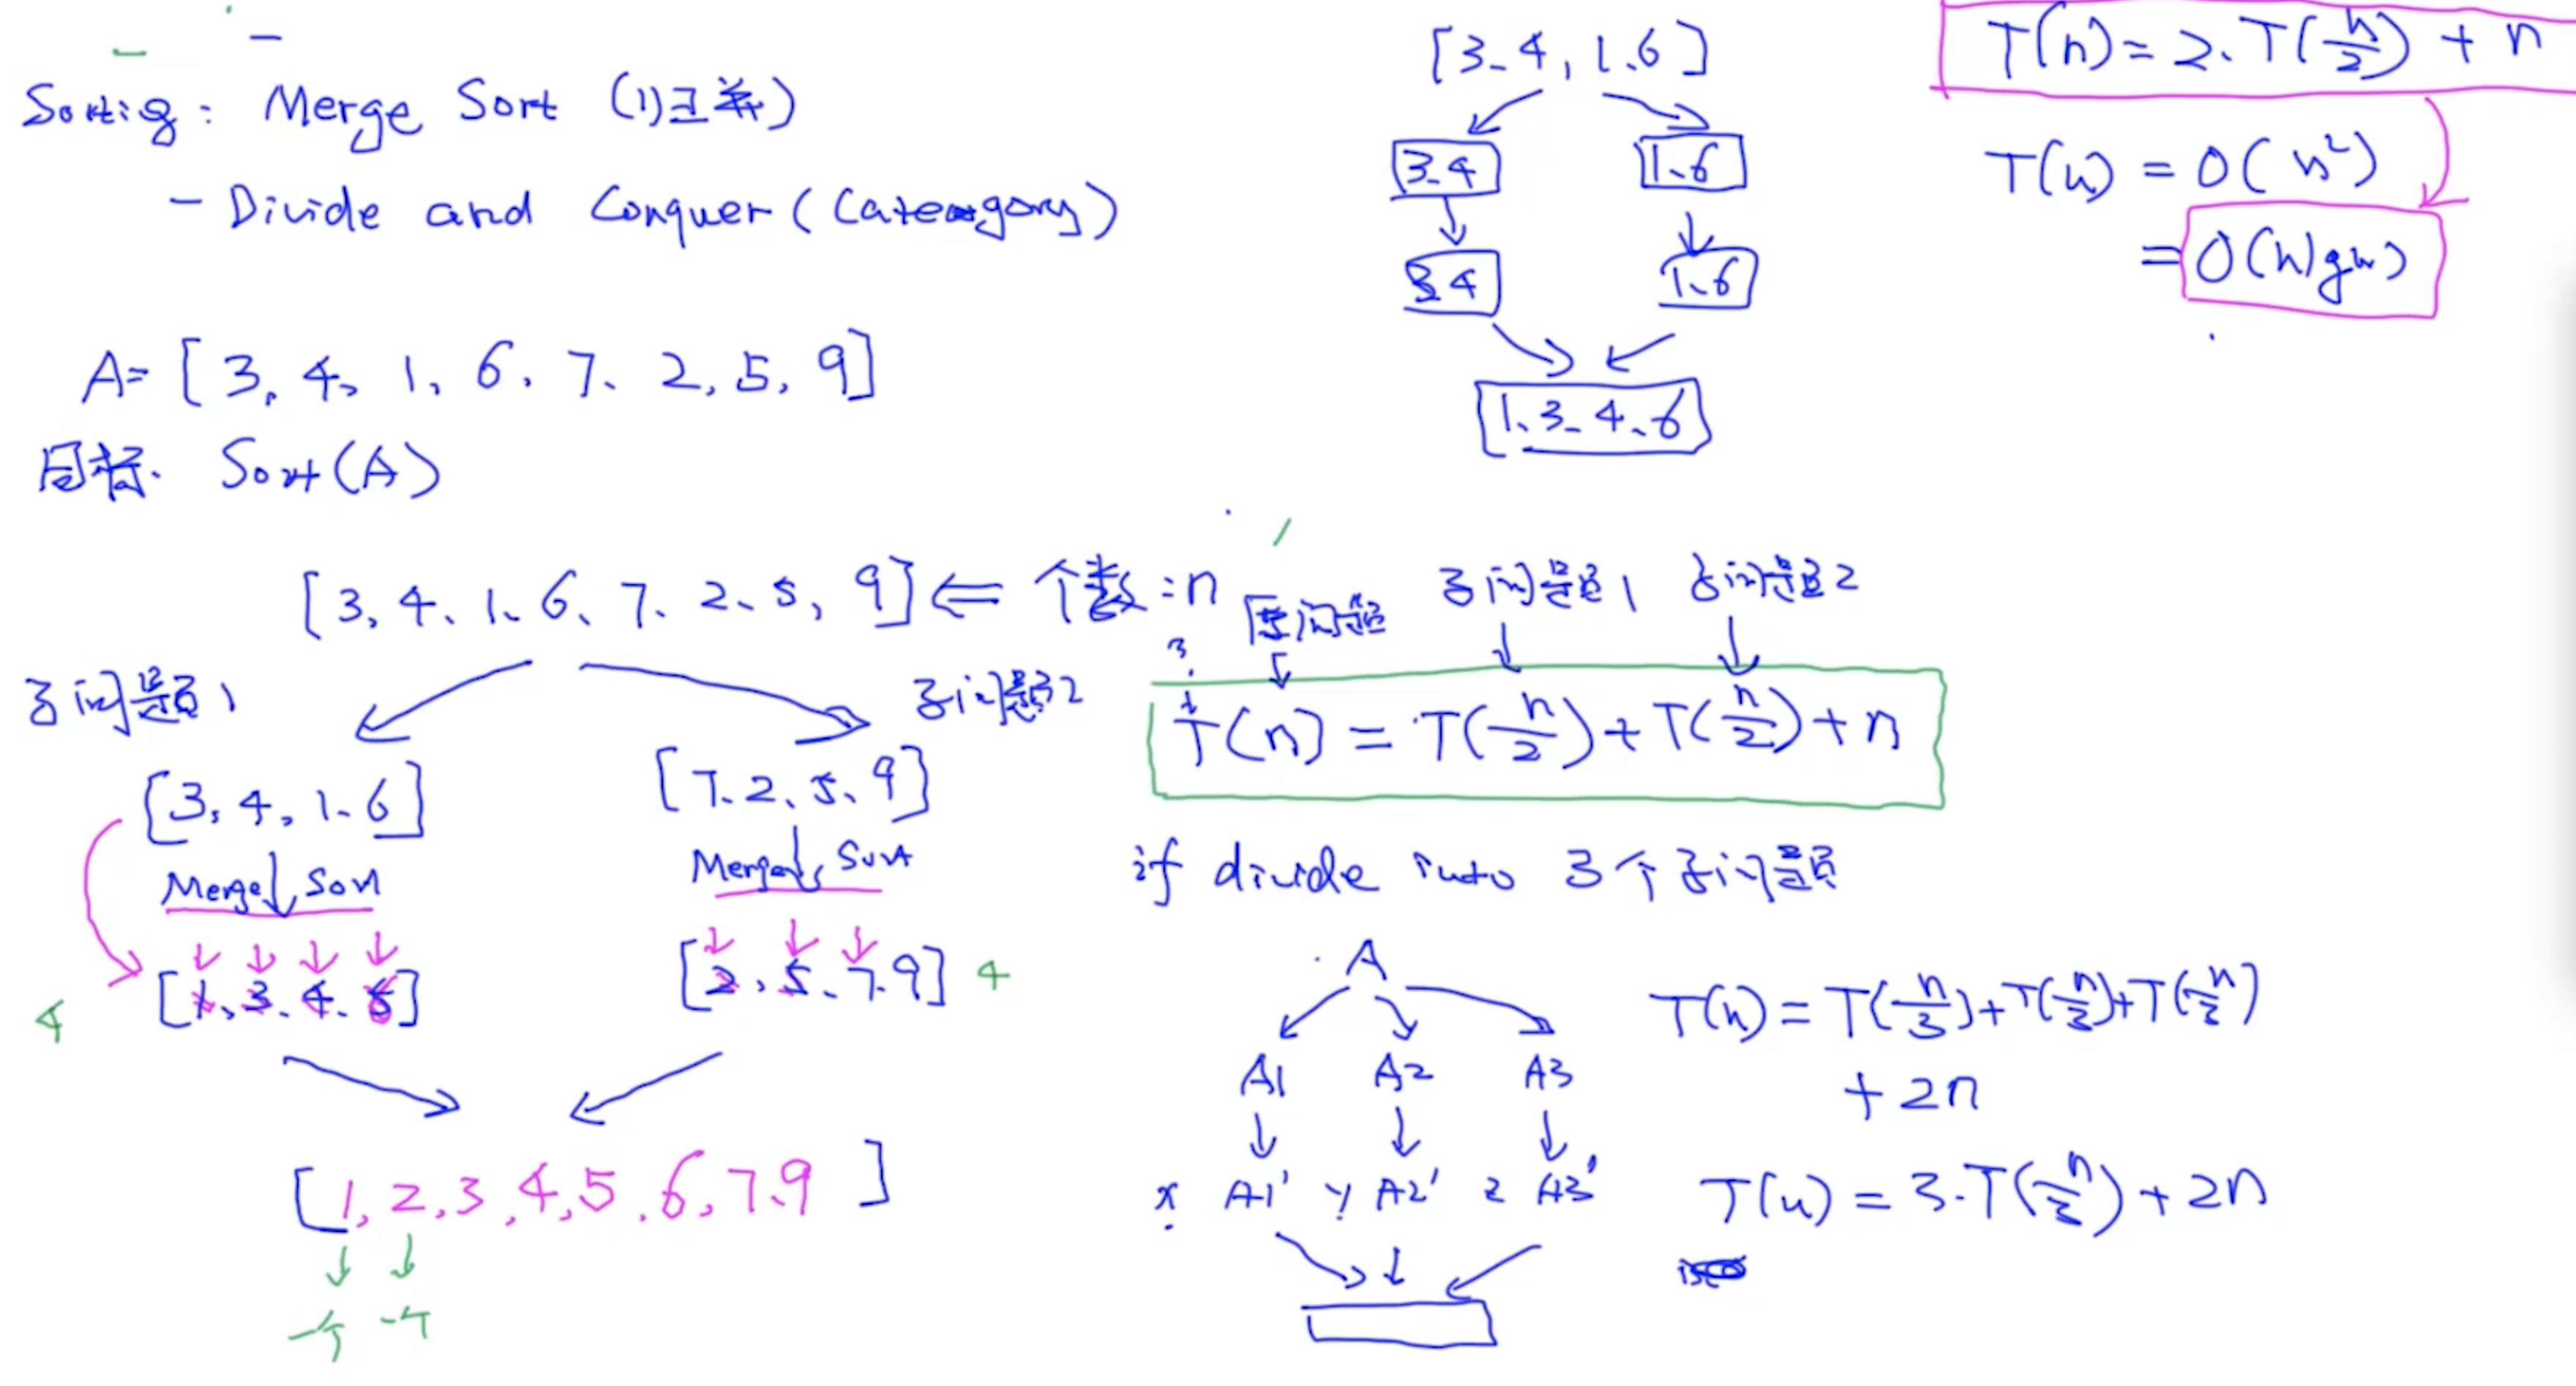 Sorting: Merge Sort (归并)
- Divide and Conquer (Category)
A= [3, 4, 1, 6, 7, 2, 5, 9]
目标. Sort(A)
[3, 4, 1, 6, 7, 2, 5, 9] ⇐ 个数:n
子问题1
子问题2
[3, 4, 1, 6]
[7, 2, 5, 9]
Merge Sort
Merge Sort
4 [1, 3, 4, 6]
[2, 5, 7, 9] 4
[1, 2, 3, 4, 5, 6, 7, 9]
[3, 4, 1, 6]
3, 4
1, 6
3, 4
1, 6
1, 3, 4, 6
T(n) = 2·T(n/2) + n
T(n) = O(n²)
= O(nlgn)
原问题 子问题1 子问题2
?
T(n) = T(n/2) + T(n/2) + n
if divide into 3个子问题
A
A1 A2 A3
x A1' y A2' z A3'
T(n) = T(n/3) + T(n/3) + T(n/3)
+ 2n
T(n) = 3·T(n/3) + 2n